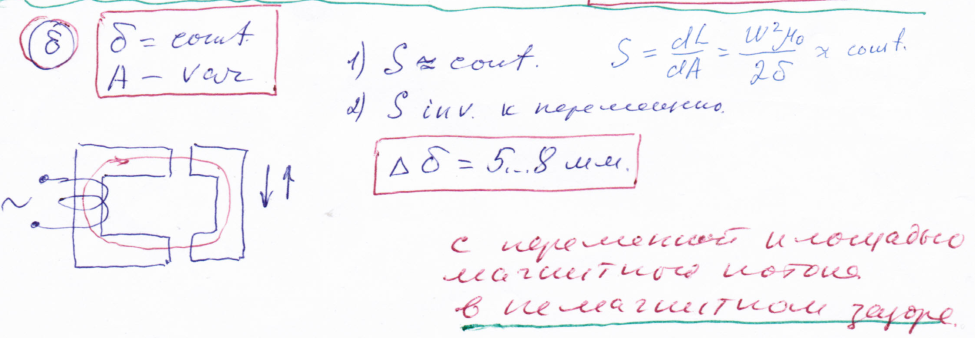 б
δ = const.
A - var
1) S ≈ const. S = dL/dA = W²μ₀/2δ ≈ const.
2) S inv. к перемещению.
Δδ = 5...8 мм.
~
с переменной площадью
магнитного потока
в немагнитном зазоре.